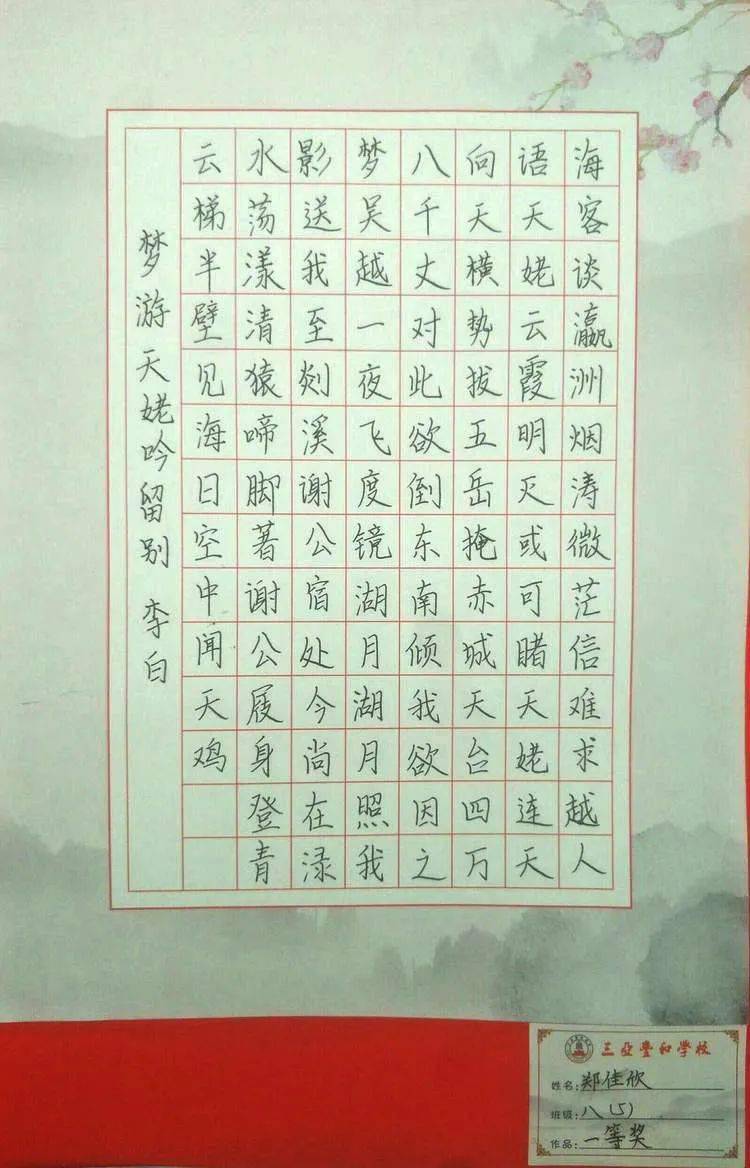 海客谈瀛洲烟涛微茫信难求越人
语天姥云霞明灭或可睹天姥连天
向天横势拔五岳掩赤城天台四万
八千丈对此欲倒东南倾我欲因之
梦吴越一夜飞度镜湖月湖月照我
影送我至剡溪谢公宿处今尚在渌
水荡漾清猿啼脚著谢公屐身登青
云梯半壁见海日空中闻天鸡
梦游天姥吟留别 李白
三亚丰和学校
姓名:郑佳欣
班级:八(5)
作品:一等奖